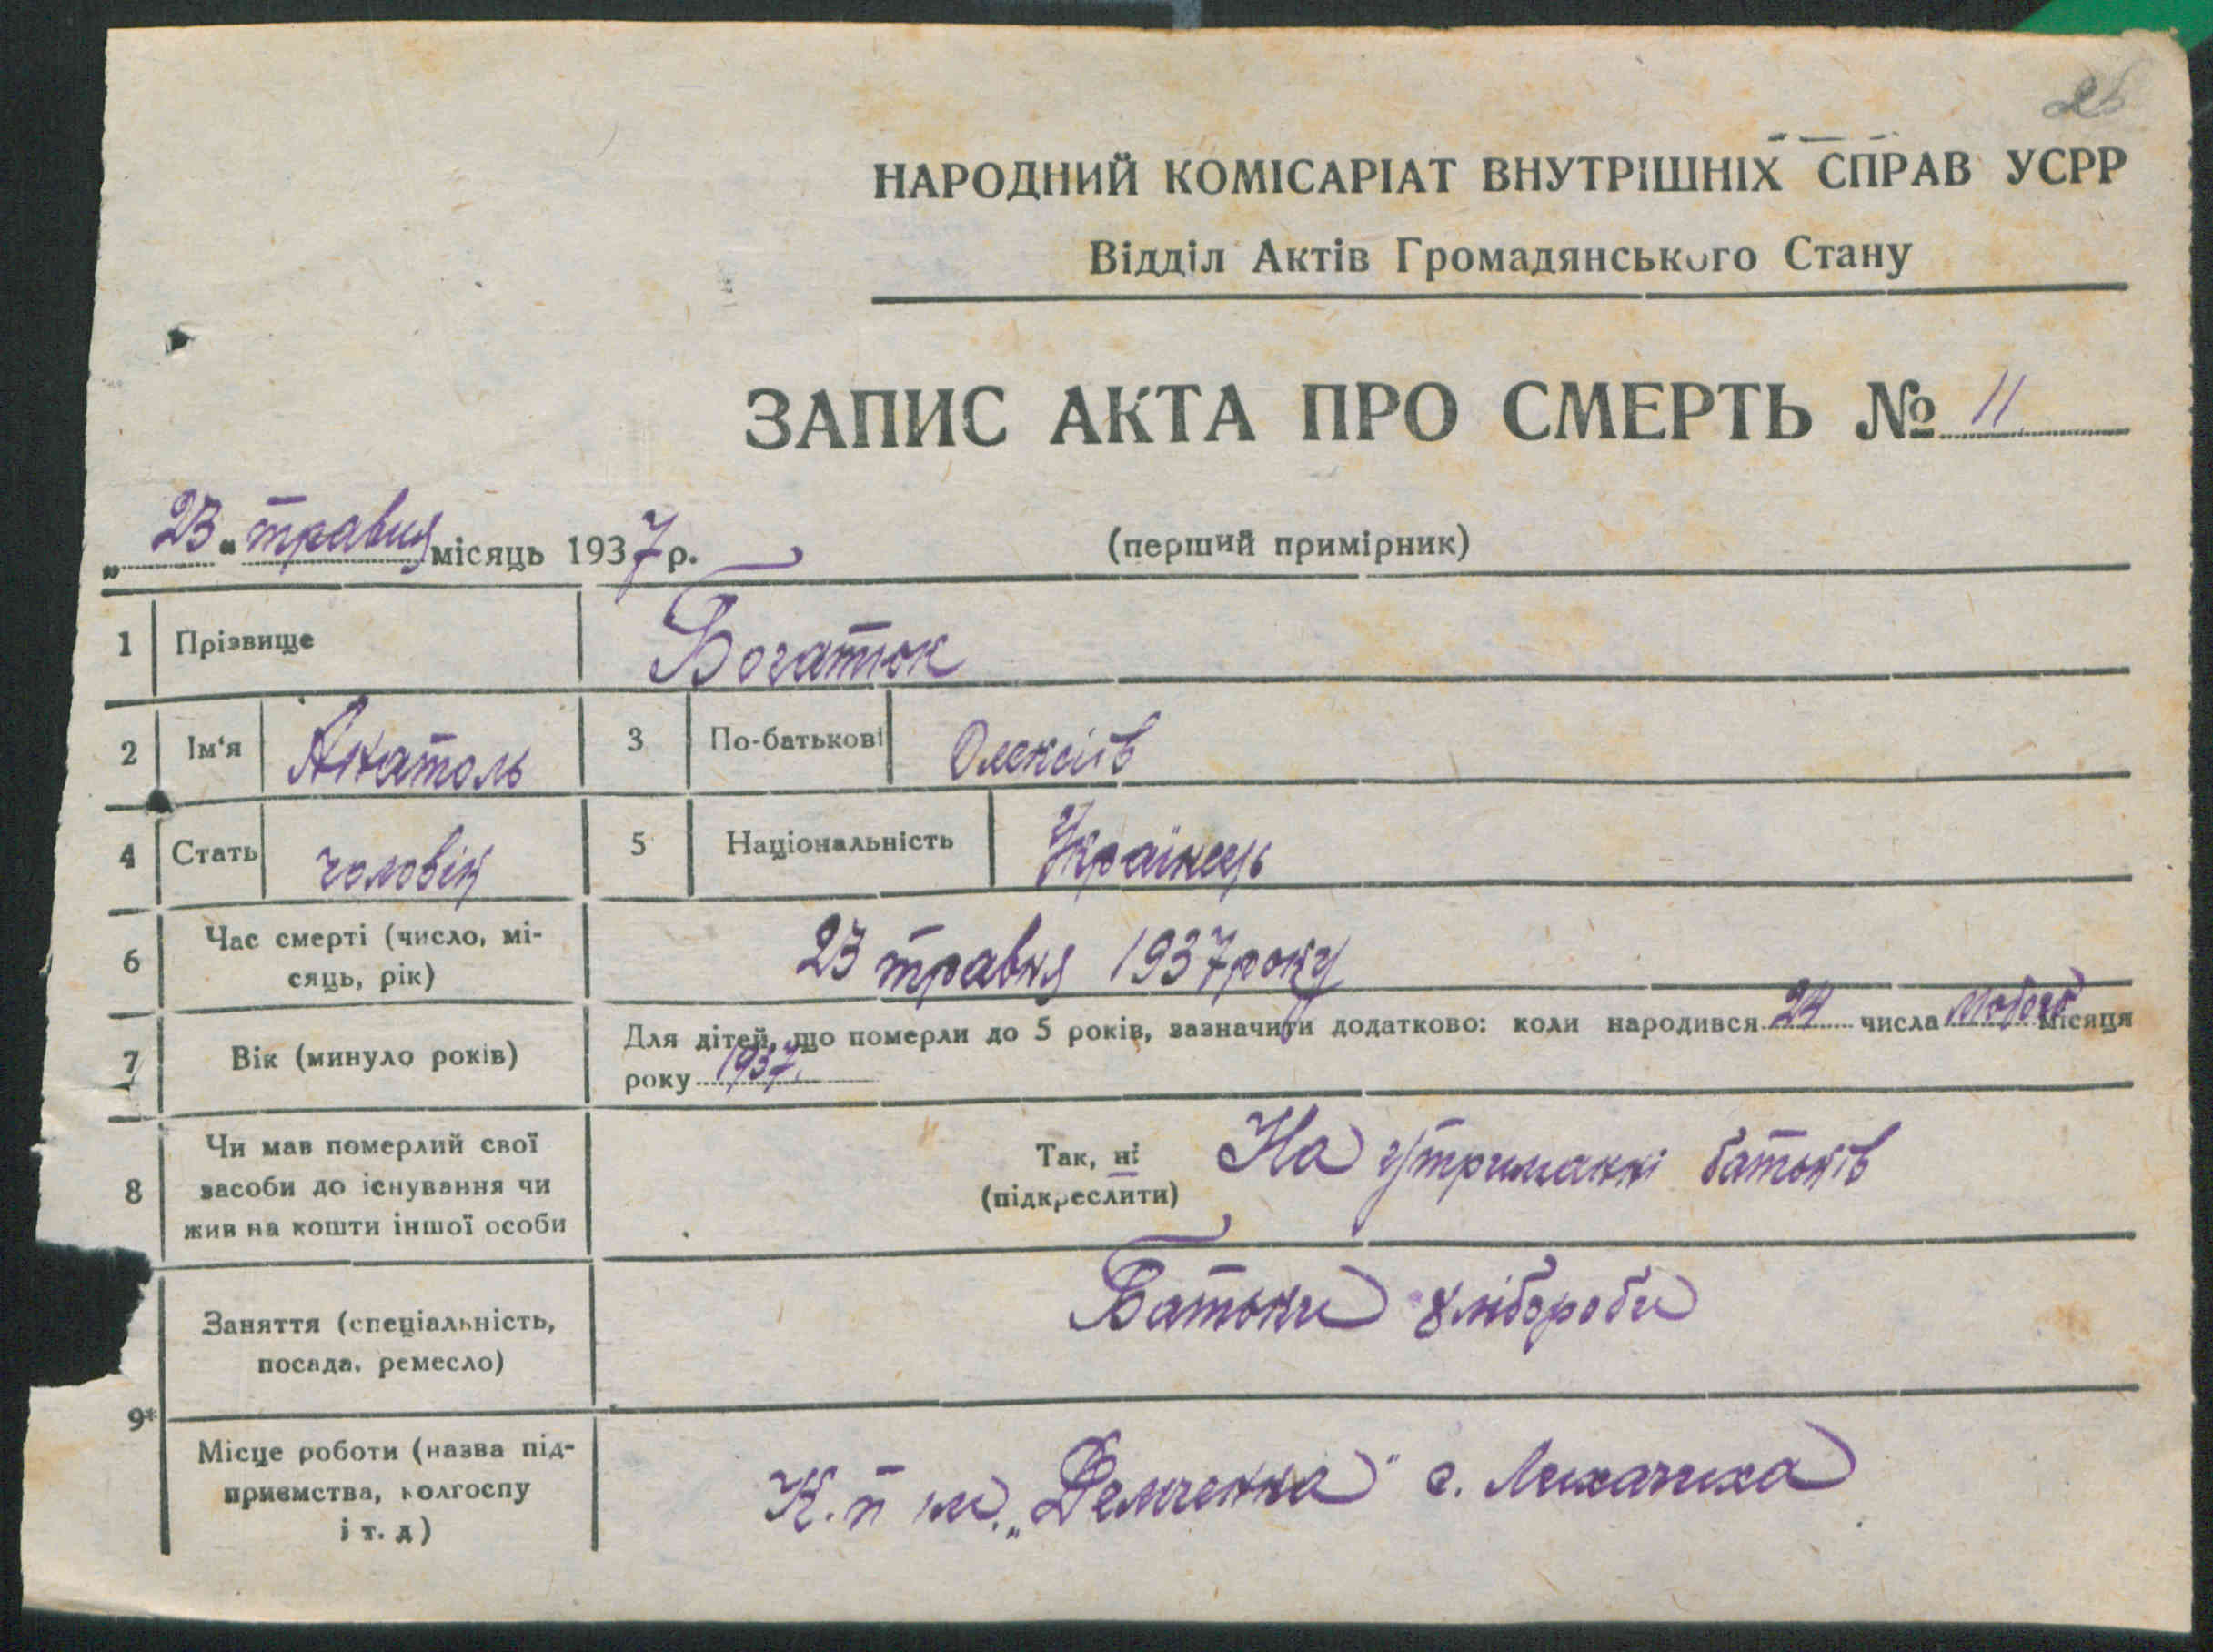 26
НАРОДНИЙ КОМІСАРІАТ ВНУТРІШНІХ СПРАВ УСРР
Відділ Актів Громадянського Стану
ЗАПИС АКТА ПРО СМЕРТЬ № 11
„23“ травня місяць 1937 р.
(перший примірник)
1 Прізвище Богатюк
2 Ім‘я Анатоль 3 По-батькові Олексіів
4 Стать чоловік 5 Національність Українець
6 Час смерті (число, мі-
сяць, рік) 23 травня 1937 року
7 Вік (минуло років) Для дітей, що померли до 5 років, зазначити додатково: коли народився 24 числа лютого місяця
року 1937.
8 Чи мав померлий свої
засоби до існування чи
жив на кошти іншої особи
Так, ні На утриманні батьків
(підкреслити)
9* Заняття (спеціальність,
посада, ремесло) Батьки хлібороби
Місце роботи (назва під-
приємства, колгоспу
і т. д) К.п ім. „Демченка" с. Лихачиха